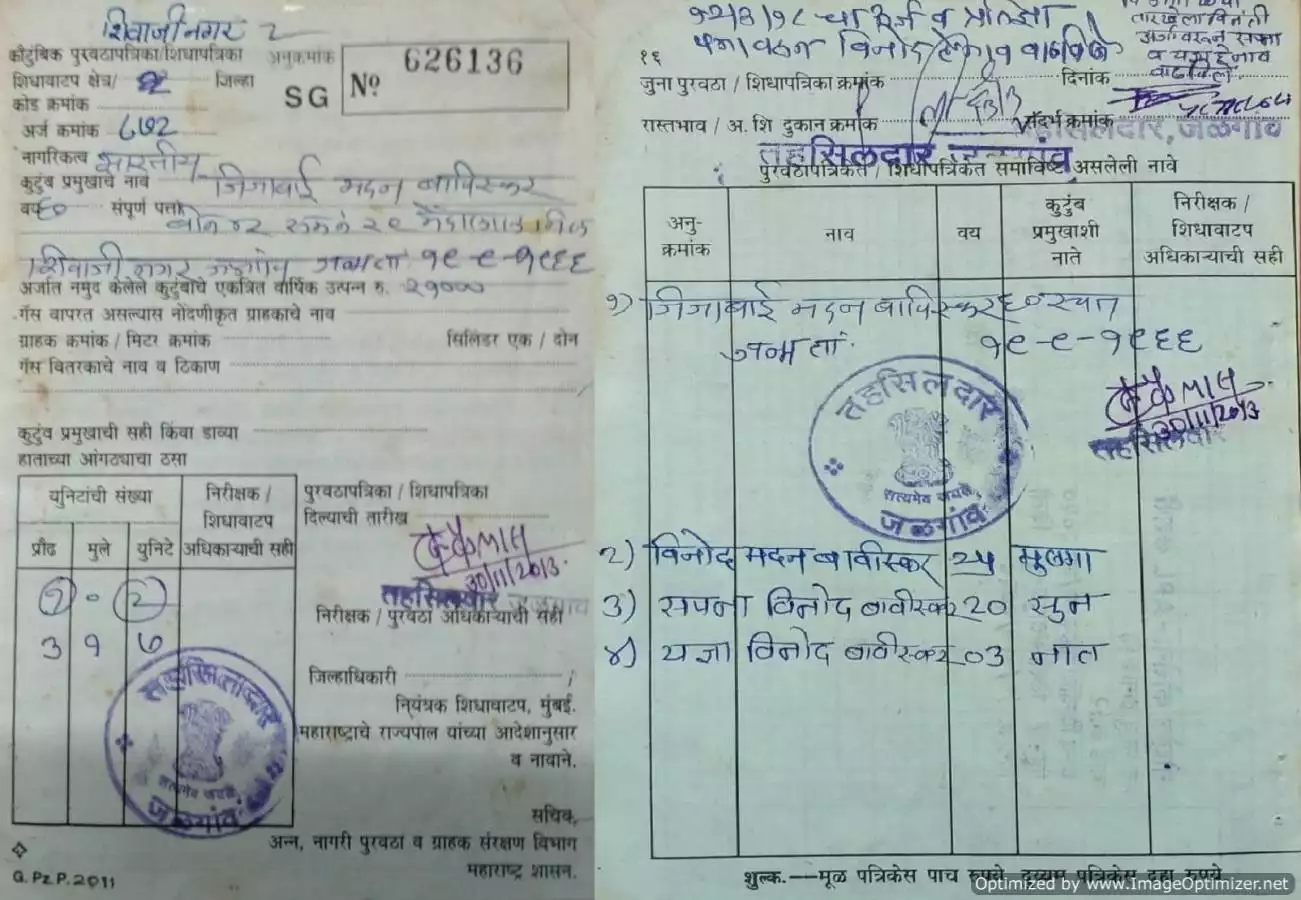 शिवाजीनगर २
कौटुंबिक पुरवठापत्रिका/शिधापत्रिका
अनुक्रमांक
शिधावाटप क्षेत्र/ जिल्हा
SG Nº 626136
कोड क्रमांक
अर्ज क्रमांक ८७२
नागरिकत्व भारतीय
कुटुंब प्रमुखाचे नाव जिजाबाई मदन बाविस्कर
वय ६० संपूर्ण पत्ता
शिवाजी नगर जळगांव जन्मता १९-९-१९६६
अर्जात नमुद केलेले कुटुंबाचे एकत्रित वार्षिक उत्पन्न रु. २१०००
गॅस वापरत असल्यास नोंदणीकृत ग्राहकाचे नाव
ग्राहक क्रमांक / मिटर क्रमांक सिलिंडर एक / दोन
गॅस वितरकाचे नाव व ठिकाण
कुटुंब प्रमुखाची सही किंवा डाव्या
हाताच्या आंगठ्याचा ठसा
युनिटांची संख्या
निरीक्षक / शिधावाटप अधिकाऱ्याची सही
प्रौढ मुले युनिटे
२ ० २
३ १ ७
पुरवठापत्रिका / शिधापत्रिका
दिल्याची तारीख
30/11/2013
तहसिलदार जळगाव
निरीक्षक / पुरवठा अधिकाऱ्याची सही
जिल्हाधिकारी
नियंत्रक शिधावाटप, मुंबई.
महाराष्ट्राचे राज्यपाल यांच्या आदेशानुसार
व नावाने.
तहसिलदार
सत्यमेव जयते
जळगांव
सचिव,
अन्न, नागरी पुरवठा व ग्राहक संरक्षण विभाग
महाराष्ट्र शासन.
G.Pz P.2011
१६
जुना पुरवठा / शिधापत्रिका क्रमांक दिनांक
रास्तभाव / अ. शि दुकान क्रमांक संदर्भ क्रमांक
तहसिलदार, जळगाव
तहसिलदार जळगांव
पुरवठापत्रिकेत / शिधापत्रिकेत समाविष्ट असलेली नावे
अनु-क्रमांक नाव वय कुटुंब प्रमुखाशी नाते निरीक्षक / शिधावाटप अधिकाऱ्याची सही
१) जिजाबाई मदन बाविस्कर ६० स्वतः
जन्म ता. १९-९-१९६६
30/11/2013
तहसिलदार
तहसिलदार
सत्यमेव जयते
जळगांव
२) विनोद मदन बावीस्कर २५ मुलगा
३) सपना विनोद बावीस्कर २० सुन
४) यज्ञा विनोद बावीस्कर ०३ नात
शुल्क.—मूळ पत्रिकेस पाच रुपये, दुय्यम पत्रिकेस दहा रुपये
Optimized by www.ImageOptimizer.net